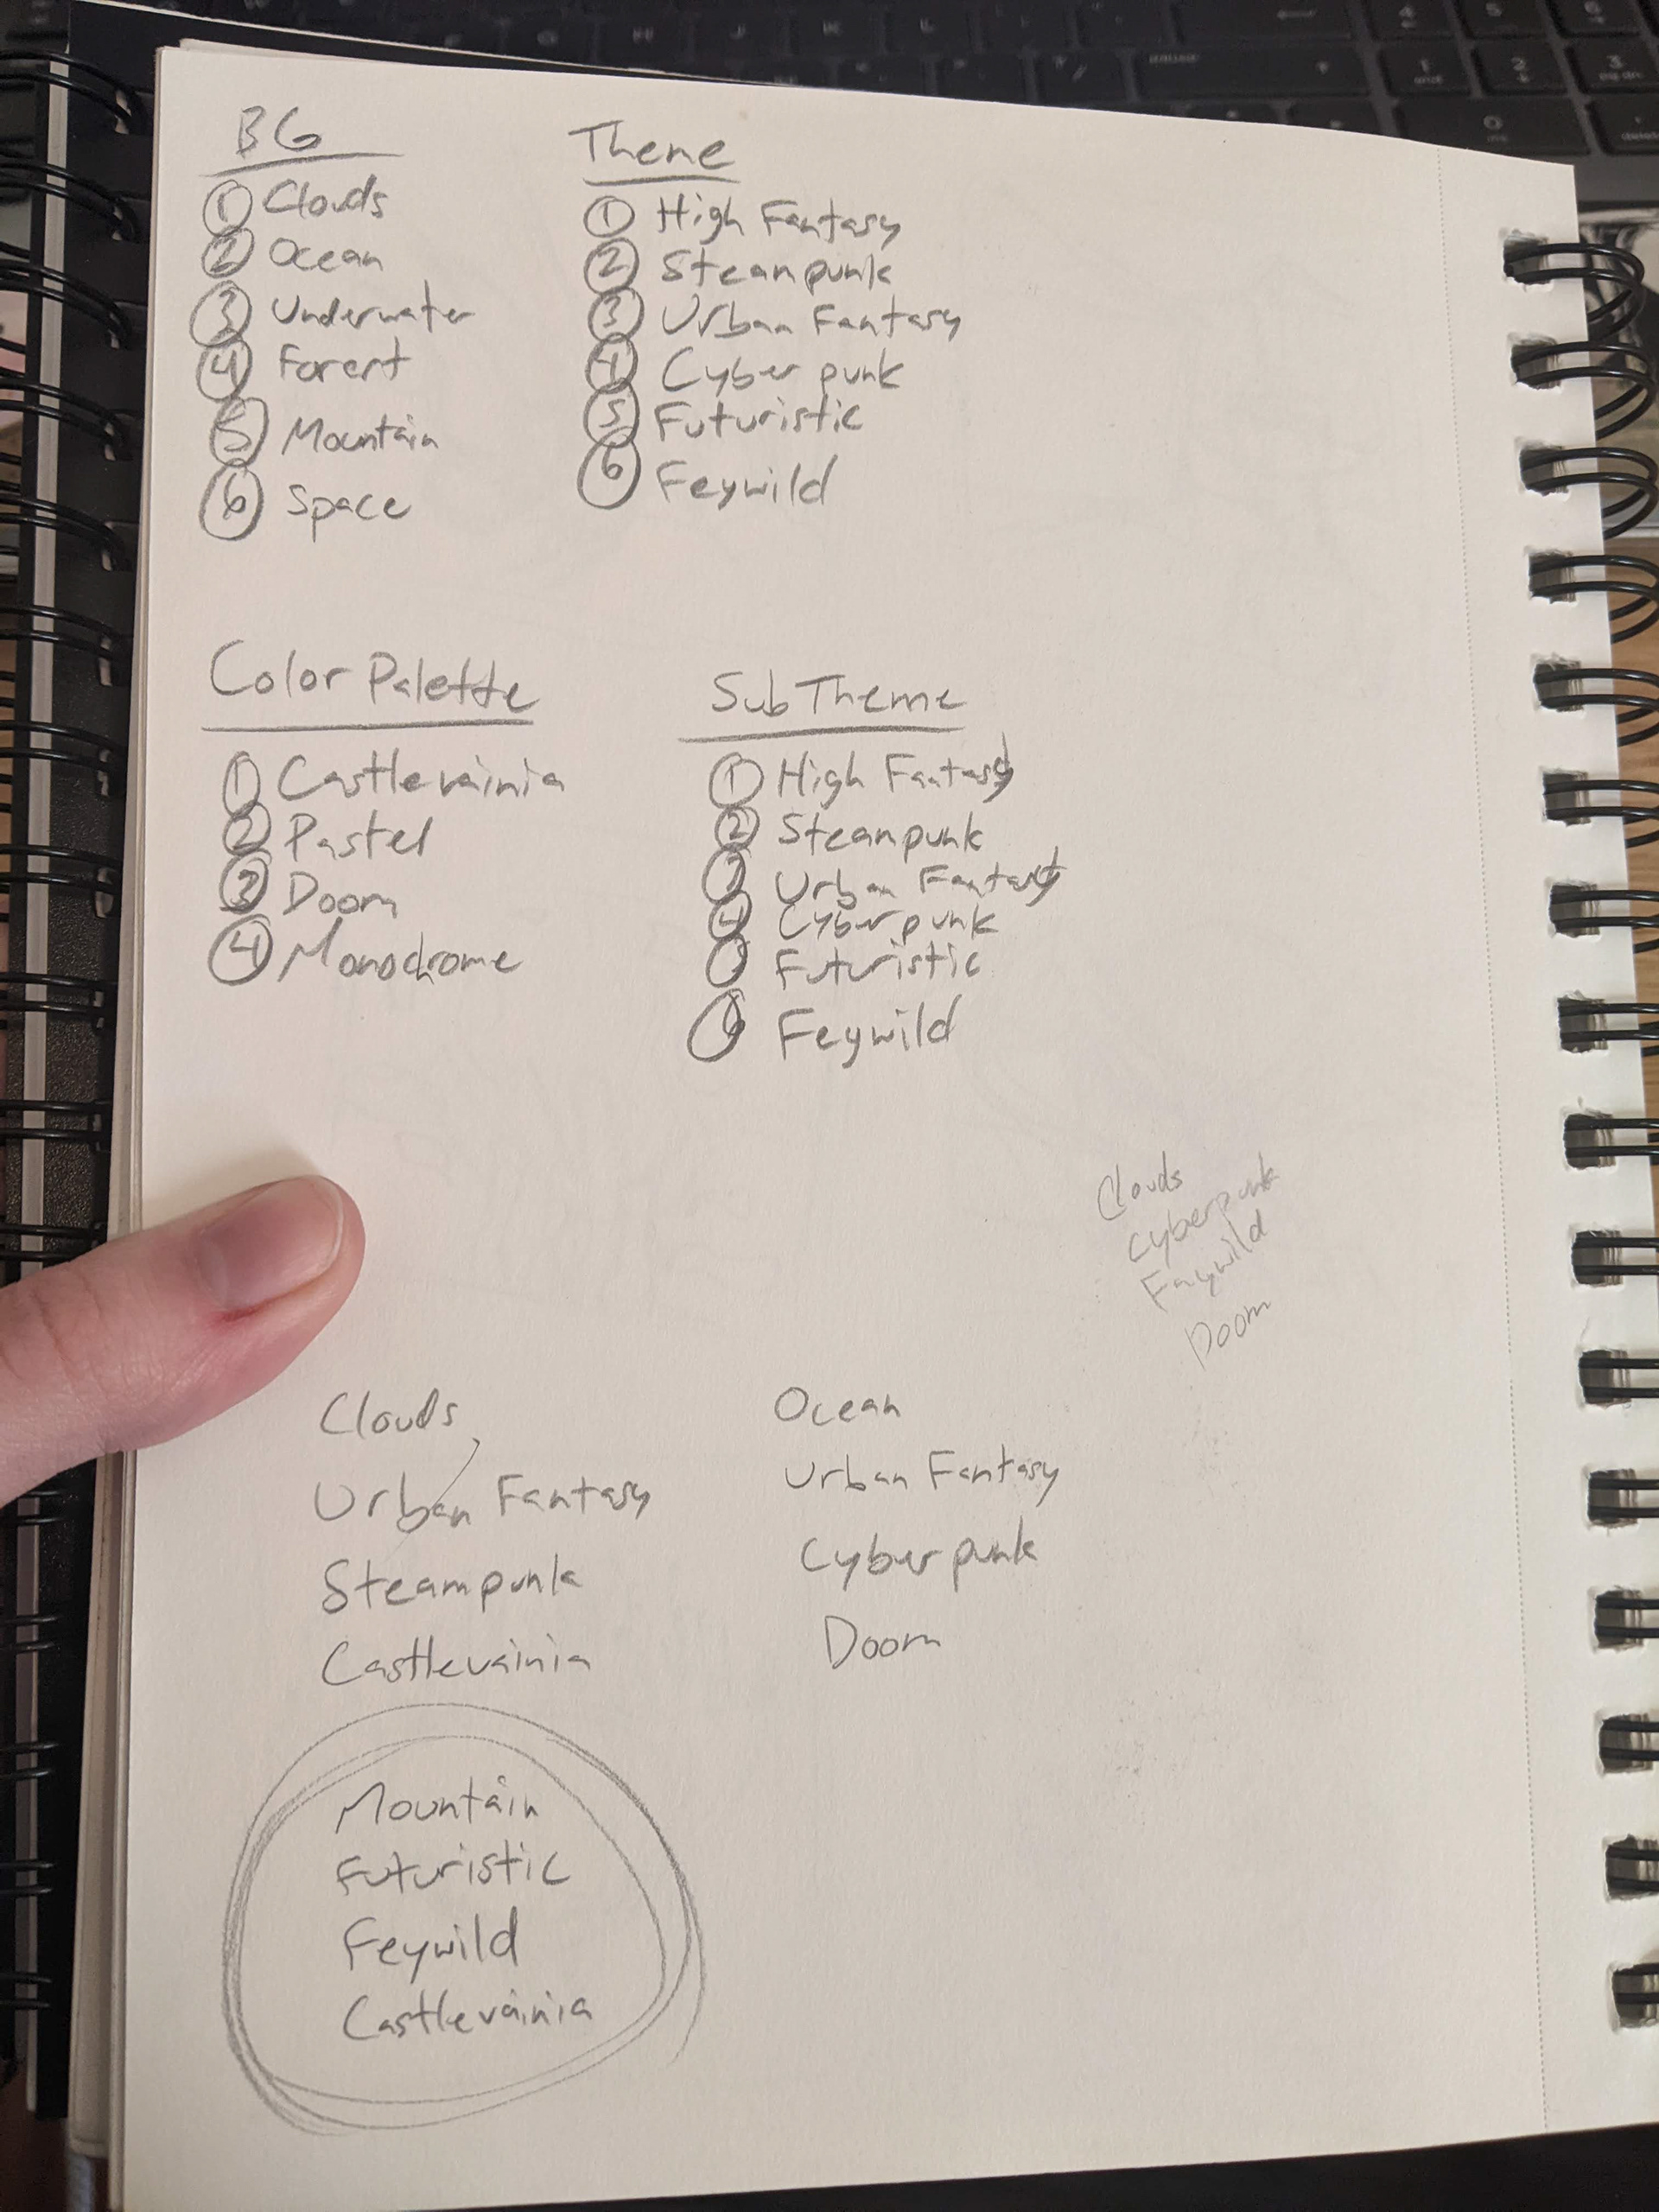 BG
① Clouds
② Ocean
③ Underwater
④ Forest
⑤ Mountain
⑥ Space
Theme
① High Fantasy
② Steampunk
③ Urban Fantasy
④ Cyberpunk
⑤ Futuristic
⑥ Feywild
Color Palette
① Castlevainia
② Pastel
③ Doom
④ Monochrome
SubTheme
① High Fantasy
② Steampunk
③ Urban Fantasy
④ Cyberpunk
Futuristic
Feywild
Clouds
Cyberpunk
Faywild
Doom
Clouds
Urban Fantasy
Steampunk
Castlevainia
Ocean
Urban Fantasy
Cyberpunk
Doom
Mountain
Futuristic
Feywild
Castlevainia